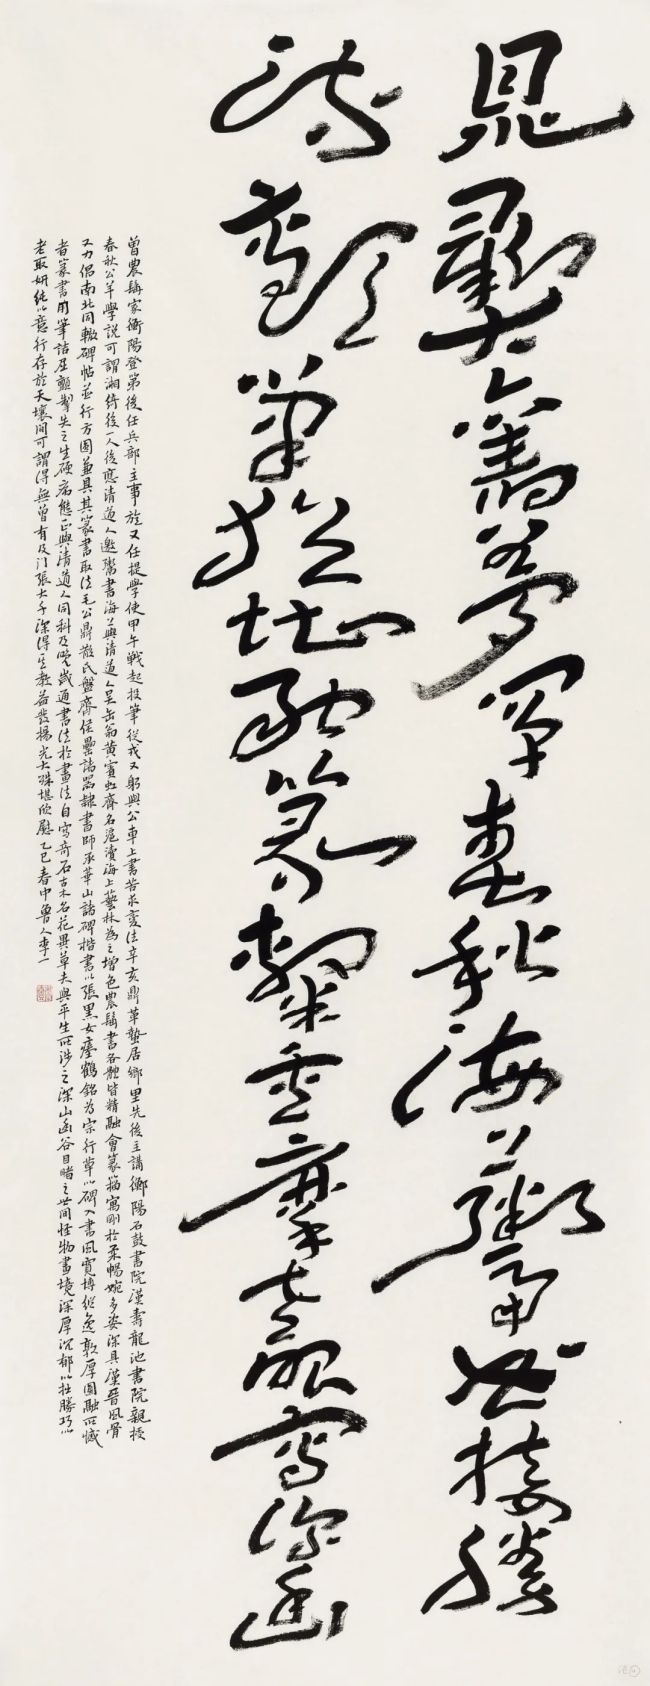 舊夢罕春秋海上鬻書接
筆縱融篆寫深幽
曾農髯家衡陽登第後任兵部主事旋又任提學使甲午戰起投筆從戎又躬與公車上書若求變法辛亥鼎革蟄居鄉里先後主講衡陽石鼓書院漢壽龍池書院親授
春秋公羊學說可謂湘綺後一人後應清道人邀鬻書海上與清道人吳缶翁黃賓虹齊名滬瀆海上藝林為之增色農髯書各體皆精融會篆籀寓剛於柔暢婉多姿深具漢晉風骨
又力倡南北同轍碑帖並行方圓兼具其篆書取法毛公鼎散氏盤齊侯罍諸器隸書師承華山諸碑楷書以張黑女瘞鶴銘為宗行草以碑入書風寬博縱逸敦厚圓融所憾
者篆書用筆詰屈顫掣失之生硬病態正與清道人同科及晚歲通書法於畫法自寫奇石古木名花異草夫與平生所涉之深山幽谷目睹之世間怪物畫境深厚沉郁以拙勝巧以
老取妍純以意行存於天壤間可謂得無曾有及门張大千深得其教益發揚光大殊堪欣慰 乙巳春中魯人李一